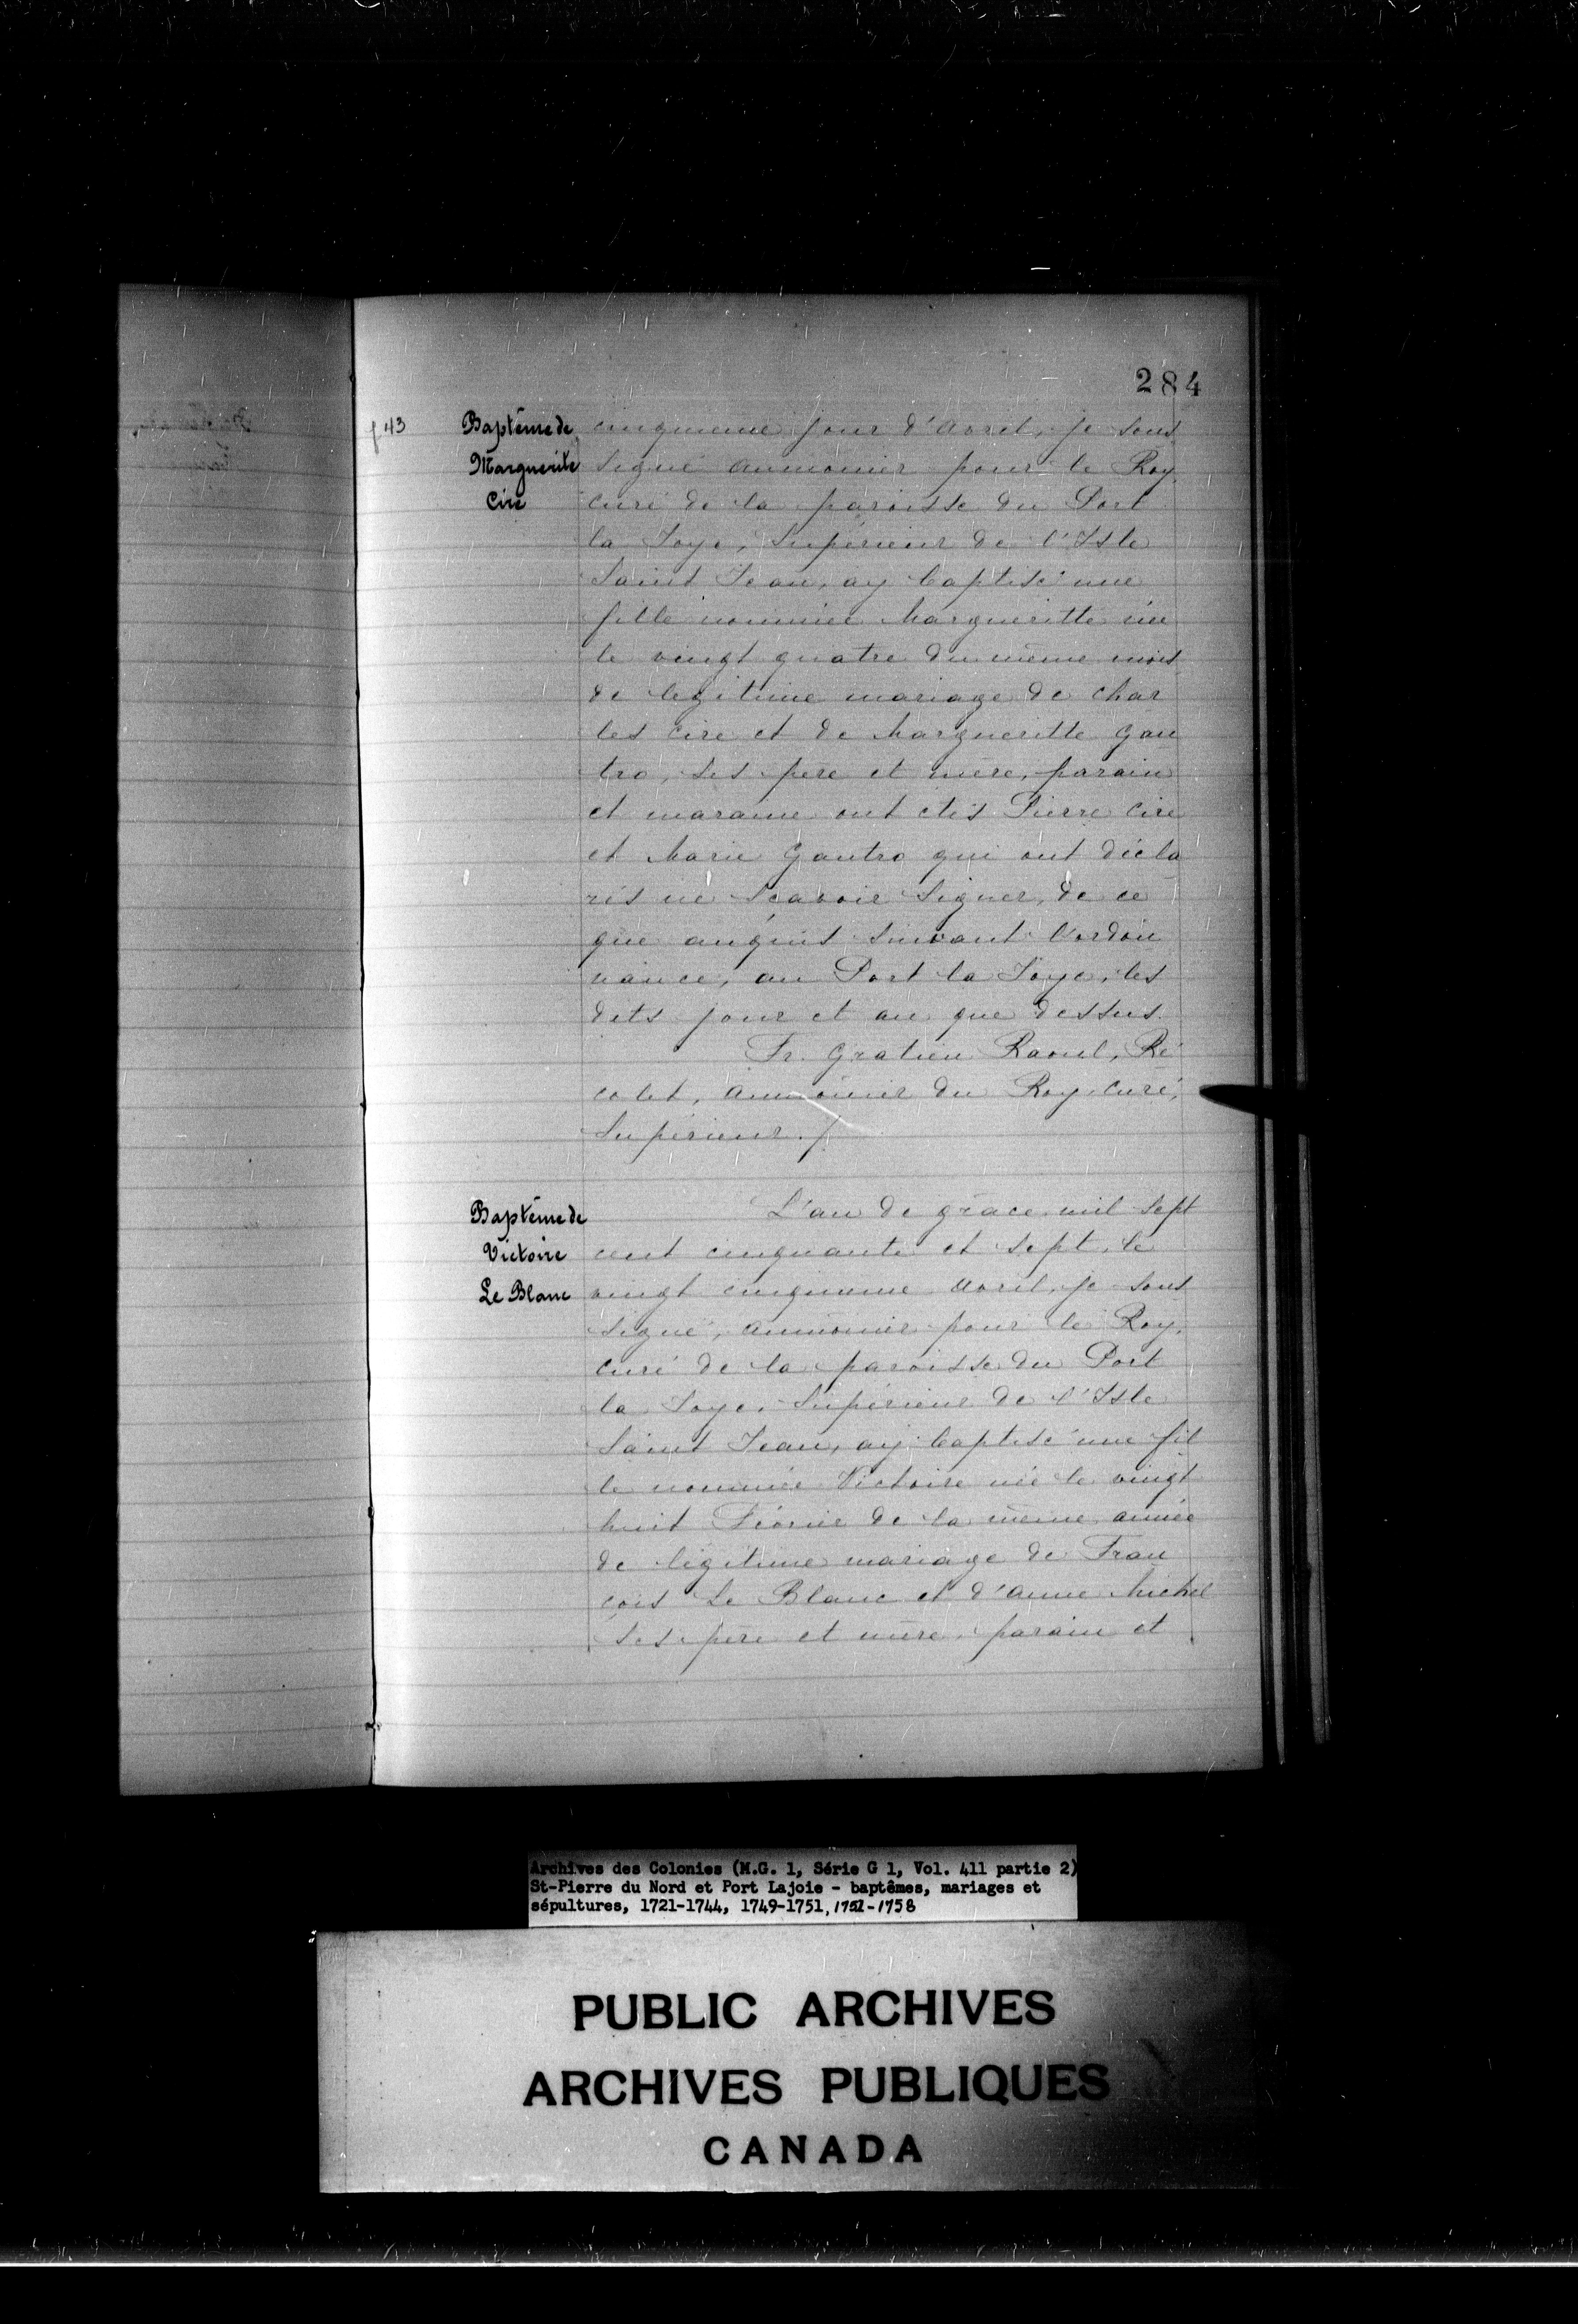 284
f 43
Baptême de
Marguerite
Cire
cinquieme jour d'avril, je sous
signé aumonier pour le Roy
curé de la paroisse du Port
la Joye, Supérieur de l'Isle
Saint Jean, ay baptisé une
fille nommée Margueritte née
le vingt quatre du même mois
de legitime mariage de Char
les Cire et de Margueritte Gau
tro, ses pere et mère, parain
et maraine ont étés Pierre Cire
et Marie Gautro qui ont décla
rés ne Scavoir Signer, de ce
que enquis suivant l'ordon
nance, au Port la Joye, les
dits jour et an que dessus.
Fr. Gratien Raoul, Ré
colet, aumônier du Roy, curé,
Supérieur./
Baptême de
Victoire
Le Blanc
L'an de grace mil sept
cent cinquante et sept, le
vingt cinquieme avril, je sous
signé, aumonier pour le Roy,
curé de la paroisse du Port
la Joye, Supérieur de l'Isle
Saint Jean, ay baptisé une fil
le nommée Victoire née le vingt
huit Février de la même année
de légitime mariage de Fran
çois Le Blanc et d'Anne Michel
ses père et mère, parain et
Archives des Colonies (M.G. 1, Série G 1, Vol. 411 partie 2)
St-Pierre du Nord et Port Lajoie - baptêmes, mariages et
sépultures, 1721-1744, 1749-1751, 1751-1758
PUBLIC ARCHIVES
ARCHIVES PUBLIQUES
CANADA